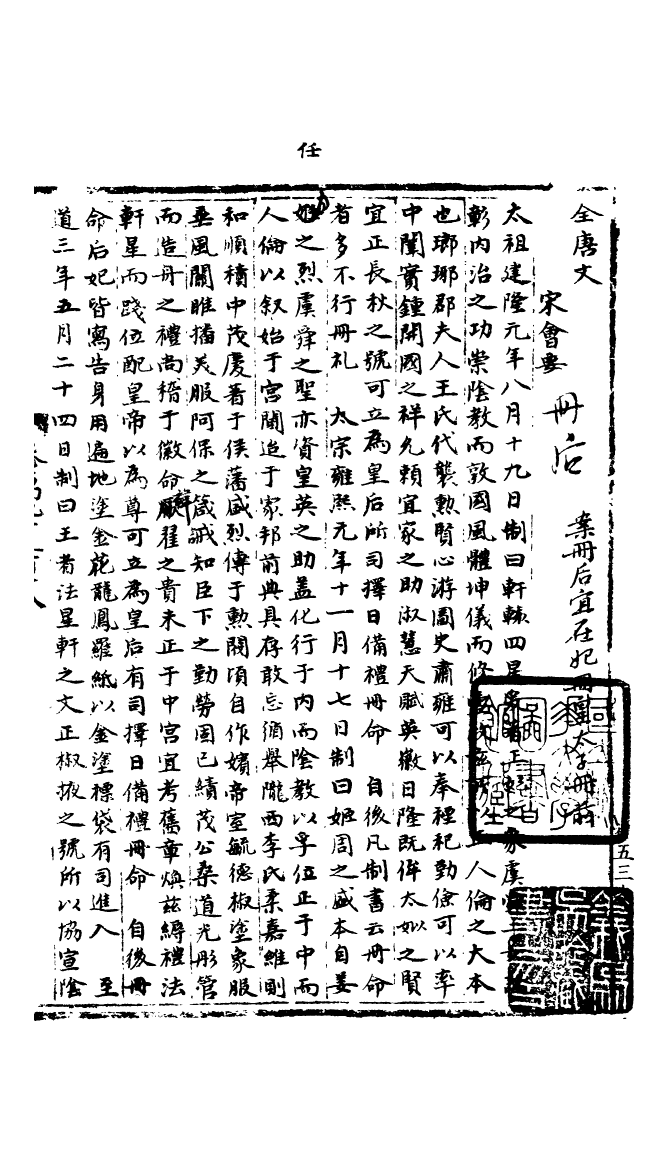 任
全唐文
宋會要
冊后
案冊后宜在妃冊皇太子冊前
太祖建隆元年八月十九日制曰軒轅四星
彰內治之功崇陰教而敦國風體坤儀而修 人倫之大本
也瑯琊郡夫人王氏代襲勲賢心游圖史肅雍可以奉禋祀勤儉可以率
中闈實鍾開國之祥允賴宜家之助淑慧天賦英徽日隆既侔太姒之賢
宜正長秋之號可立為皇后所司擇日備禮冊命 自後凡制書云冊命
者多不行冊礼 太宗雍熙元年十一月十七日制曰姬周之盛本自姜
姬之烈虞舜之聖亦資皇英之助蓋化行于內而陰教以孚位正于中而
人倫以叙始于宮闈造于家邦前典具存敢忘循舉隴西李氏柔嘉維則
和順積中茂慶著于侯藩盛烈傳于勲閥頃自作嬪帝室毓德椒塗象服
垂風關雎播美服阿保之箴誡知臣下之勤勞固已績茂公桑道光彤管
而造舟之禮尚稽于徽命翟之貴未正于中宮宜考舊章煥茲縟禮法
軒星而踐位配皇帝以為尊可立為皇后有司擇日備禮冊命 自後冊
命后妃皆寫告身用遍地塗金花龍鳳羅紙以金塗褾袋有司進入 至
道三年五月二十四日制曰王者法星軒之文正椒掖之號所以協宣陰
五三